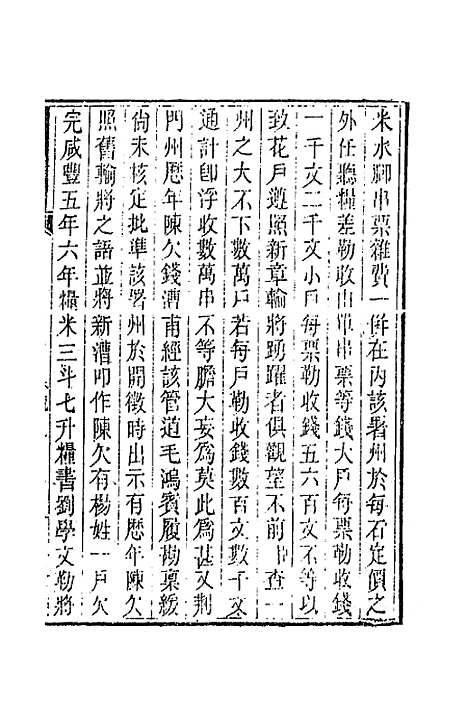 米水腳串票雜費一併在內該署州於每石定價之
外任聽糧差勒收出單串票等錢大戶每票勒收錢
一千文二千文小戶每票勒收錢五六百文不等以
致花戶遵照新章輸將踴躍者俱觀望不前查一
州之大不下數萬戶若每戶勒收錢數百文數千文
通計卽浮收數萬串不等膽大妄爲莫此爲甚又荆
門州歷年陳欠錢漕甫經該管道毛鴻賓履勘稟緩
尙未核定批準該署州於開徵時出示有歷年陳欠
照舊輸將之語並將新漕叩作陳欠有楊姓一戶欠
完咸豐五年六年糧米三斗七升糧書劉學文勒將